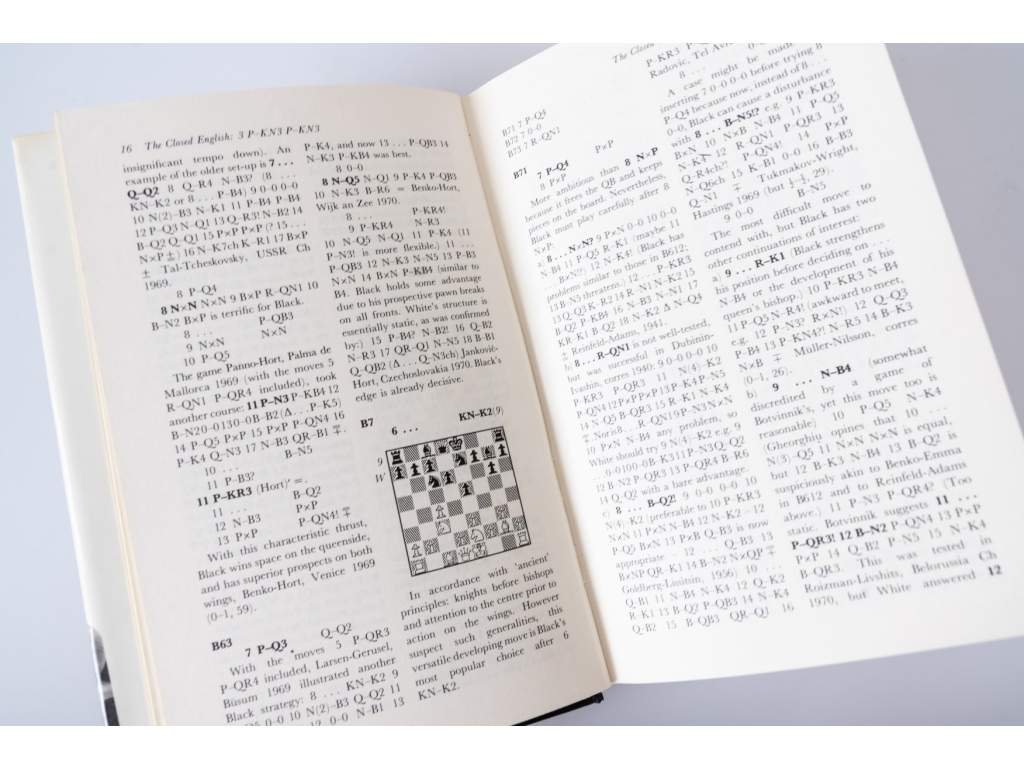 16 The Closed English: 3 P–KN3 P–KN3
insignificant tempo down). An
example of the older set-up is 7 . . .
Q–Q2 8 Q–R4 N–B3? (8 . . .
KN–K2 or 8 . . . P–B4) 9 0–0 0–0
10 N(2)–B3 N–K1 11 P–B4 P–B4
12 P–Q3 N–Q1 13 Q–R3! N–B2 14
B–Q2 Q–Q1 15 P×P P×P (? 15 . . .
N×P ±) 16 N–K7ch K–R1 17 B×P
± Tal-Tcheskovsky, USSR Ch
1969.
8 P–Q4
8 N×N N×N 9 B×P R–QN1 10
B–N2 B×P is terrific for Black.
8 . . . P–QB3
9 N×N N×N
10 P–Q5
The game Panno-Hort, Palma de
Mallorca 1969 (with the moves 5
R–QN1 P–QR4 included), took
another course: 11 P–N3 P–KB4 12
B–N2 0–0 13 0–0 B–B2 (Δ . . . P–K5)
14 P–Q5 P×P 15 P×P P–QN4 16
P–K4 Q–N3 17 N–B3 QR–B1 ∓.
10 . . . B–N5
11 P–B3?
11 P–KR3 (Hort)′ =.
11 . . . B–Q2
12 N–B3 P×P
13 P×P P–QN4! ∓
With this characteristic thrust,
Black wins space on the queenside,
and has superior prospects on both
wings, Benko-Hort, Venice 1969
(0–1, 59).
B63
7 P–Q3 Q–Q2
With the moves 5 P–QR3
P–QR4 included, Larsen-Gerusel,
Büsum 1969 illustrated another
Black strategy: 8 . . . KN–K2 9
0–0 10 N(2)–B3 Q–Q2 11
12 0–0 N–B1 13
P–K4, and now 13 . . . P–QB3 14
N–K3 P–KB4 was best.
8 0–0
8 N–Q5 N–Q1 9 P–K4 P–QB3
10 N–K3 B–R6 = Benko-Hort,
Wijk an Zee 1970.
8 . . . P–KR4!
9 P–KR4 N–R3
10 N–Q5 N–Q1 11 P–K4 (11
P–N3! is more flexible.) 11 . . .
P–QB3 12 N–K3 N–N5 13 P–B3
N×N 14 B×N P–KB4 (similar to
B4. Black holds some advantage
due to his prospective pawn breaks
on all fronts. White's structure is
essentially static, as was confirmed
by:) 15 P–B4? N–B2! 16 Q–B2
N–R3 17 QR–Q1 N–N5 18 B–B1
Q–QB2 (Δ . . . Q–N3ch) Jankovic-
Hort, Czechoslovakia 1970. Black's
edge is already decisive.
B7
6 . . . KN–K2(9)
9
W
In accordance with 'ancient'
principles: knights before bishops
and attention to the centre prior to
action on the wings. However
suspect such generalities, this
versatile developing move is Black's
most popular choice after 6
KN–K2.
The Closed
B71 7 P–Q4
B72 7 0–0
B73 7 R–QN1
B71
7 P–Q4 P×P
8 P×P
More ambitious than 8 N×P
because it frees the QB and keeps
pieces on the board. Nevertheless,
Black must play carefully after 8
N×P:
a) 8 . . . N×N? 9 P×N 0–0 10 0–0
N–B4 11 P–Q5 R–K1 (maybe 11
. . . B×N?!) 12 N–K4! (Black has
problems similar to those in B612;
13 B–N5 threatens.) 12 . . . P–KR3
13 Q–Q3 K–R2 14 R–N1 N–K2 15
B–Q2 P–KB4 16 N–B3 N–N1 17
KR–K1 B–Q2 18 N–K2 Δ N–Q4
± Reinfeld-Adams, 1941.
8 . . . R–QN1 is not well-tested,
but was successful in Dubinin-
Ivashin, corres 1940: 9 0–0 0–0 10
P–KR3 P–QR3 11 N(4)–K2
P–QN4 12 P×P P×P 13 P–K4 P–N5
14 N–Q5 B–QR3 15 R–K1 N–K4
∓. Nor is 8 . . . R–QN1 9 P–N3 N×N
10 P×N N–B4 any problem, so
White should try 9 N(4)–K2 e.g. 9
. . . 0–0 10 0–0 B–K3 11 P–N3 Q–Q2
12 B–N2 P–QR3 13 P–QR4 B–R6
14 Q–Q2 with a bare advantage.
c) 8 . . . B–Q2! 9 0–0 0–0 10
N(4)–K2 (preferable to 10 P–KR3
P×N N–B4 12 N–K2 = 12
P–Q5 B×N 13 P×B Q–B3 is now
appropriate . 12 . . . Q–B3 13
B×NP QR–K1 14 B–N2 N×QP ∓
Goldberg-Lisitsin, 1956) 10 . . .
Q–B1 11 N–B4 N–K4 12 Q–K2
R–K1 13 B–Q2 P–QB3 14 N–K4
Q–B2 15 B–QB3 QR–Q1 16
P–KR3
Radovic, Tel Aviv
8 . . .
A case might be made
inserting 7 0–0 0–0 before trying 8
P–Q4 because now, instead of 8 . . .
0–0, Black can cause a disturbance
with 8 . . . B–N5!? e.g. 9 P–KR3
B×N 10 N×B N–B4 11 P–Q5
N–K4 12 N–N1 P–QR3 13
Q–R4ch? P–QN4! 14 P×P
N–Q6ch 15 K–B1 0–0 16 B–B3
Q–N1 ∓ Tukmakov-Wright,
Hastings 1969 (but ½–½, 29).
9 0–0 B–N5
The most difficult move to
contend with, but Black has two
other continuations of interest:
a) 9 . . . R–K1 (Black strengthens
his position before deciding on . . .
N–B4 or the development of his
queen's bishop.) 10 P–KR3 N–B4
11 P–Q5 N–R4! (awkward to meet,
e.g. 12 P–N3? R×N!) 12 Q–Q3
P–B4 13 P–KN4?! N–R5 14 B–K3
N×B ∓ Müller-Nilsson, corres
(0–1, 26).
b) 9 . . . N–B4 (somewhat
discredited by a game of
Botvinnik's, yet this move too is
reasonable) 10 P–Q5 N–K4
(Gheorghiu opines that 10 . . .
N(3)–Q5 11 N×N N×N is equal,
but 12 B–K3 N–B4 13 B–Q2 is
suspiciously akin to Benko-Emma
in B612 and to Reinfeld-Adams
above.) 11 P–N3 P–QR4? (Too
static. Botvinnik suggests 11 . . .
P–QR3! 12 B–N2 P–QN4 13 P×P
P×P 14 Q–B2 P–N5 15 N–K4
B–QR3. This was tested in
Roizman-Livshits, Belorussia Ch
1970, but White answered 12